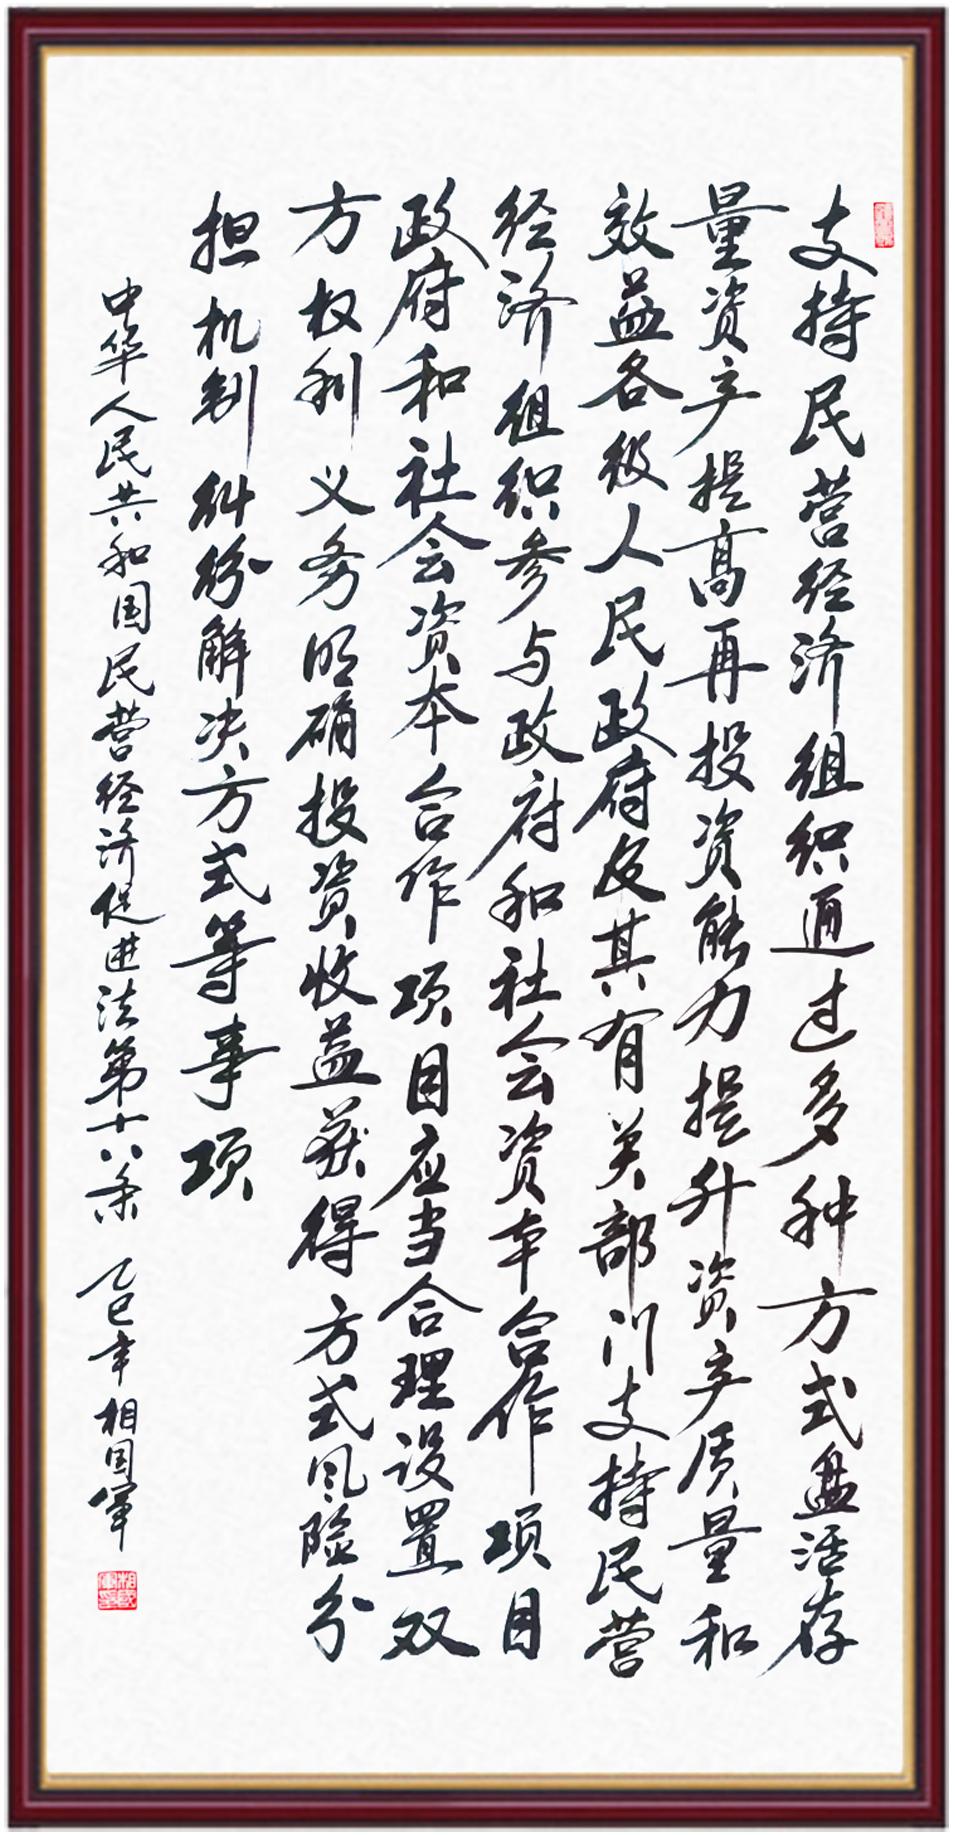 支持民营经济组织通过多种方式盘活存
量资产提高再投资能力提升资产质量和
效益各级人民政府及其有关部门支持民营
经济组织参与政府和社会资本合作项目
政府和社会资本合作项目应当合理设置双
方权利义务明确投资收益获得方式风险分
担机制纠纷解决方式等事项
中华人民共和国民营经济促进法第十八条 乙巳年相国军
相國軍印